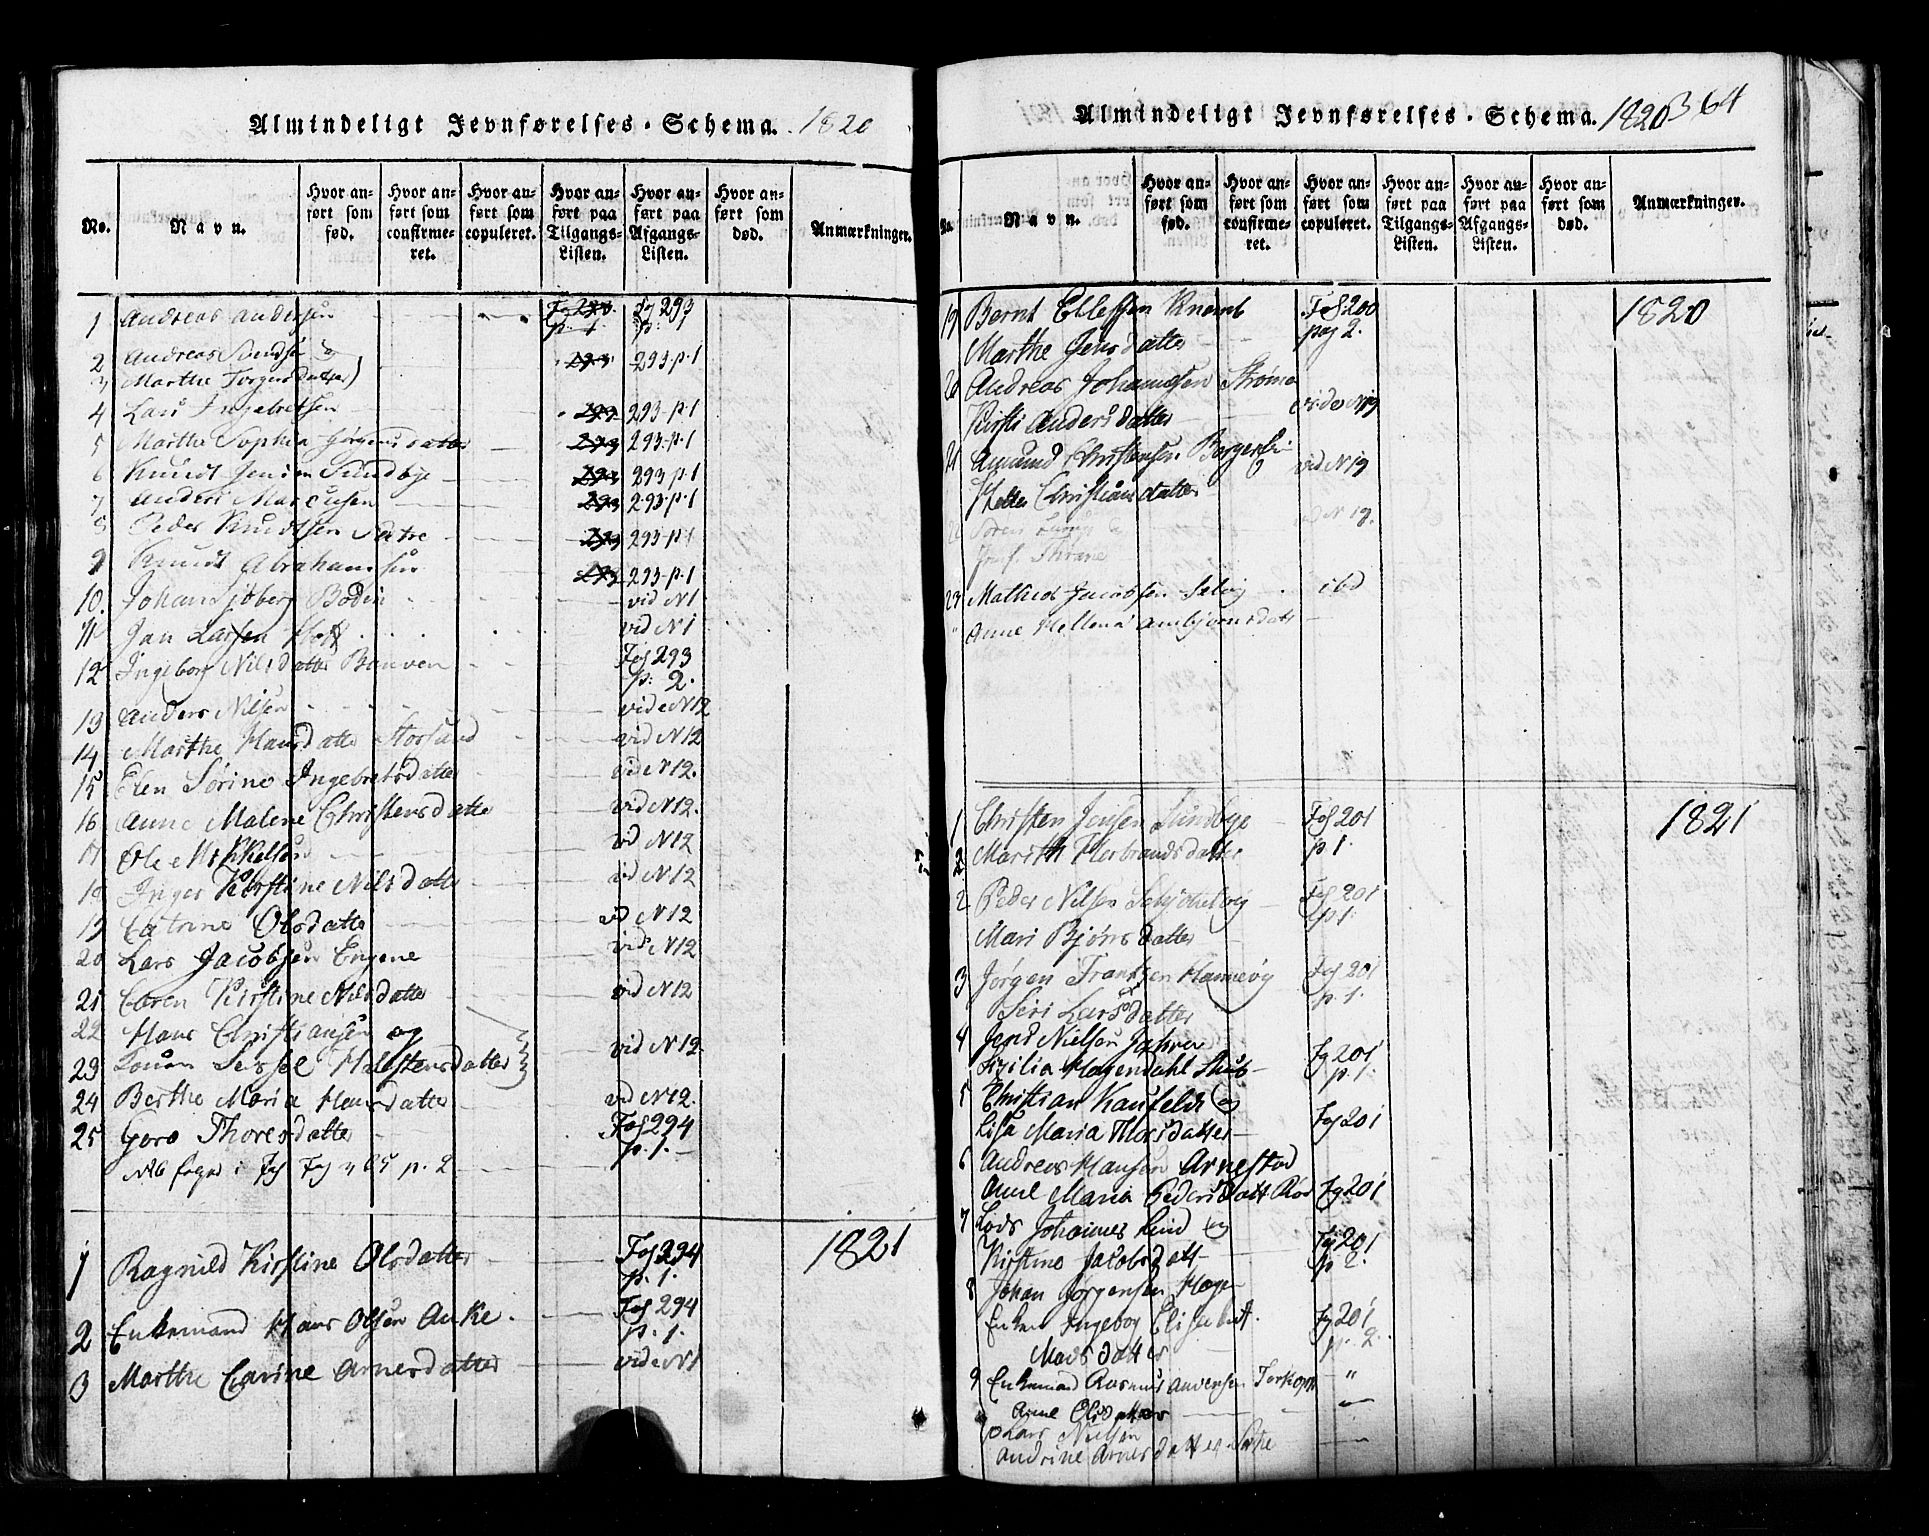 Almindeligt Jevnførelses-Schema. 1820
No. Navn. Hvor anført som fød. Hvor anført som confirmeret. Hvor anført som copuleret. Hvor anført paa Tilgangs-Listen. Hvor anført paa Afgangs-Listen. Hvor anført som død. Anmærkninger.
1 Andreas Andersen Fg 293. p. 1. Fg 293 p. 1
2 Andreas og 293 293-p.1
3 Marthe Torgersdatter)
4 Lars Ingebretsen 293 293-p.1
5 Marthe Sophia Jørgensdatter 293 293-p.1
6 Knudt Jensen Sundbye 293 293 p.1
7 Anders Marcusen 293 293-p.1
8 Peder Knudtsen Sætre 293 293-p.1
9 Knudt Abrahamsen 293 293-p.1
10. Johan Sjöberg Bodin vid N1
11 Jan Larsen vid N1
12 Ingeborg Nilsdatter Fol 293 p: 2.
13 Anders Nilsen vid N12
14 Marthe Hansdatter Storsund vid N12
15 Elen Sørine Ingebretsdatter vid N12.
16 Anne Malene Christensdatter vid N12.
17 Ole Mikkelsen vid N12
18 Inger Kirstine Nilsdatter vid N12
19 Catrine Olsdatter vid N12
20 Lars Jacobsen Engene vid N12
21 Caren Kirstine Nilsdatter vid N12
22 Hans Christiansen og
23 Konen Sissel Halstensdatter vid N12.
24 Berthe Maria Hansdatter vid N12.
25 Goro Thoresdatter Fol 294 p. 1.
1821
1 Ragnild Kirstine Olsdatter Fol 294 p. 1.
2 Enkemand Hans Olsen Anke. Fol 294 p. 1.
3 Marthe Carine Arnesdatter vide N1
Almindeligt Jevnførelses-Schema. 1820 364
No. Navn. Hvor anført som fød. Hvor anført som confirmeret. Hvor anført som copuleret. Hvor anført paa Tilgangs-Listen. Hvor anført paa Afgangs-Listen. Hvor anført som død. Anmærkninger.
19 Bernt Ellefsen Fol 200 1820
Marthe Jensdatter pag 2.
20 Andreas Johannesen Strøm
Kirsti Andersdatter vide N19
21 Amund Christensen vid N19
Christiansdatter
Søren vid N 19.
Jomf. Thrane
23 Mathias Jacobsen Selvig ibd
" Anne Hellena Ambjørnsdatt
1 Christen Jensen Sundbye Fol 201 1821
2 Marith Herbrandsdatter p 1.
2 Peder Nilsen Fol 201 p 1.
Mari Bjørnsdatter
3 Jørgen Frantsen Hannevig Fol 201
Siri Larsdatter p. 1.
4 Jens Nielsen Jahren
Sisilia Hagendahl Stub Fg 201 p. 1.
5 Christian Kaufeldt og
Lisa Maria Thorsdatter Fg 201
6 Andreas Hansen Arnestad
Anne Maria Pedersdatt Rød Fg 201
7 Lars Johannes Lind og
Kirstine Jacobsdatt Fg 201 p 2.
8 Johan Jørgensen Hage
Enken Ingebog Elisabet Fg 201
Madsdatter p. 2.
9 Enkemand Rasmus Andersen Torkop "
Anne Olsdatter
10 Lars Nielsen
Andrine Arnesdatter Sætre